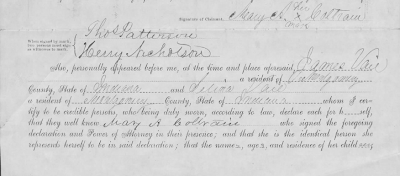 Signature of Claimant, Mary A. her x mark Coltrain
When signed by mark,
Thos Patterson
Henry Nicholson
Also, personally appeared before me, at the time and place aforesaid James Vail
a resident of Montgomery
County, State of Indiana and Vail
a resident of Montgomery County, State of Indiana whom I cer-
tify to be credible persons, who being duly sworn, according to law, declare each for h self,
that they well know Mary A Coltrain who signed the foregoing
declaration and Power of Attorney in their presence; and that she is the identical person she
represents herself to be in said declaration; that the names, ages, and residence of her child ren